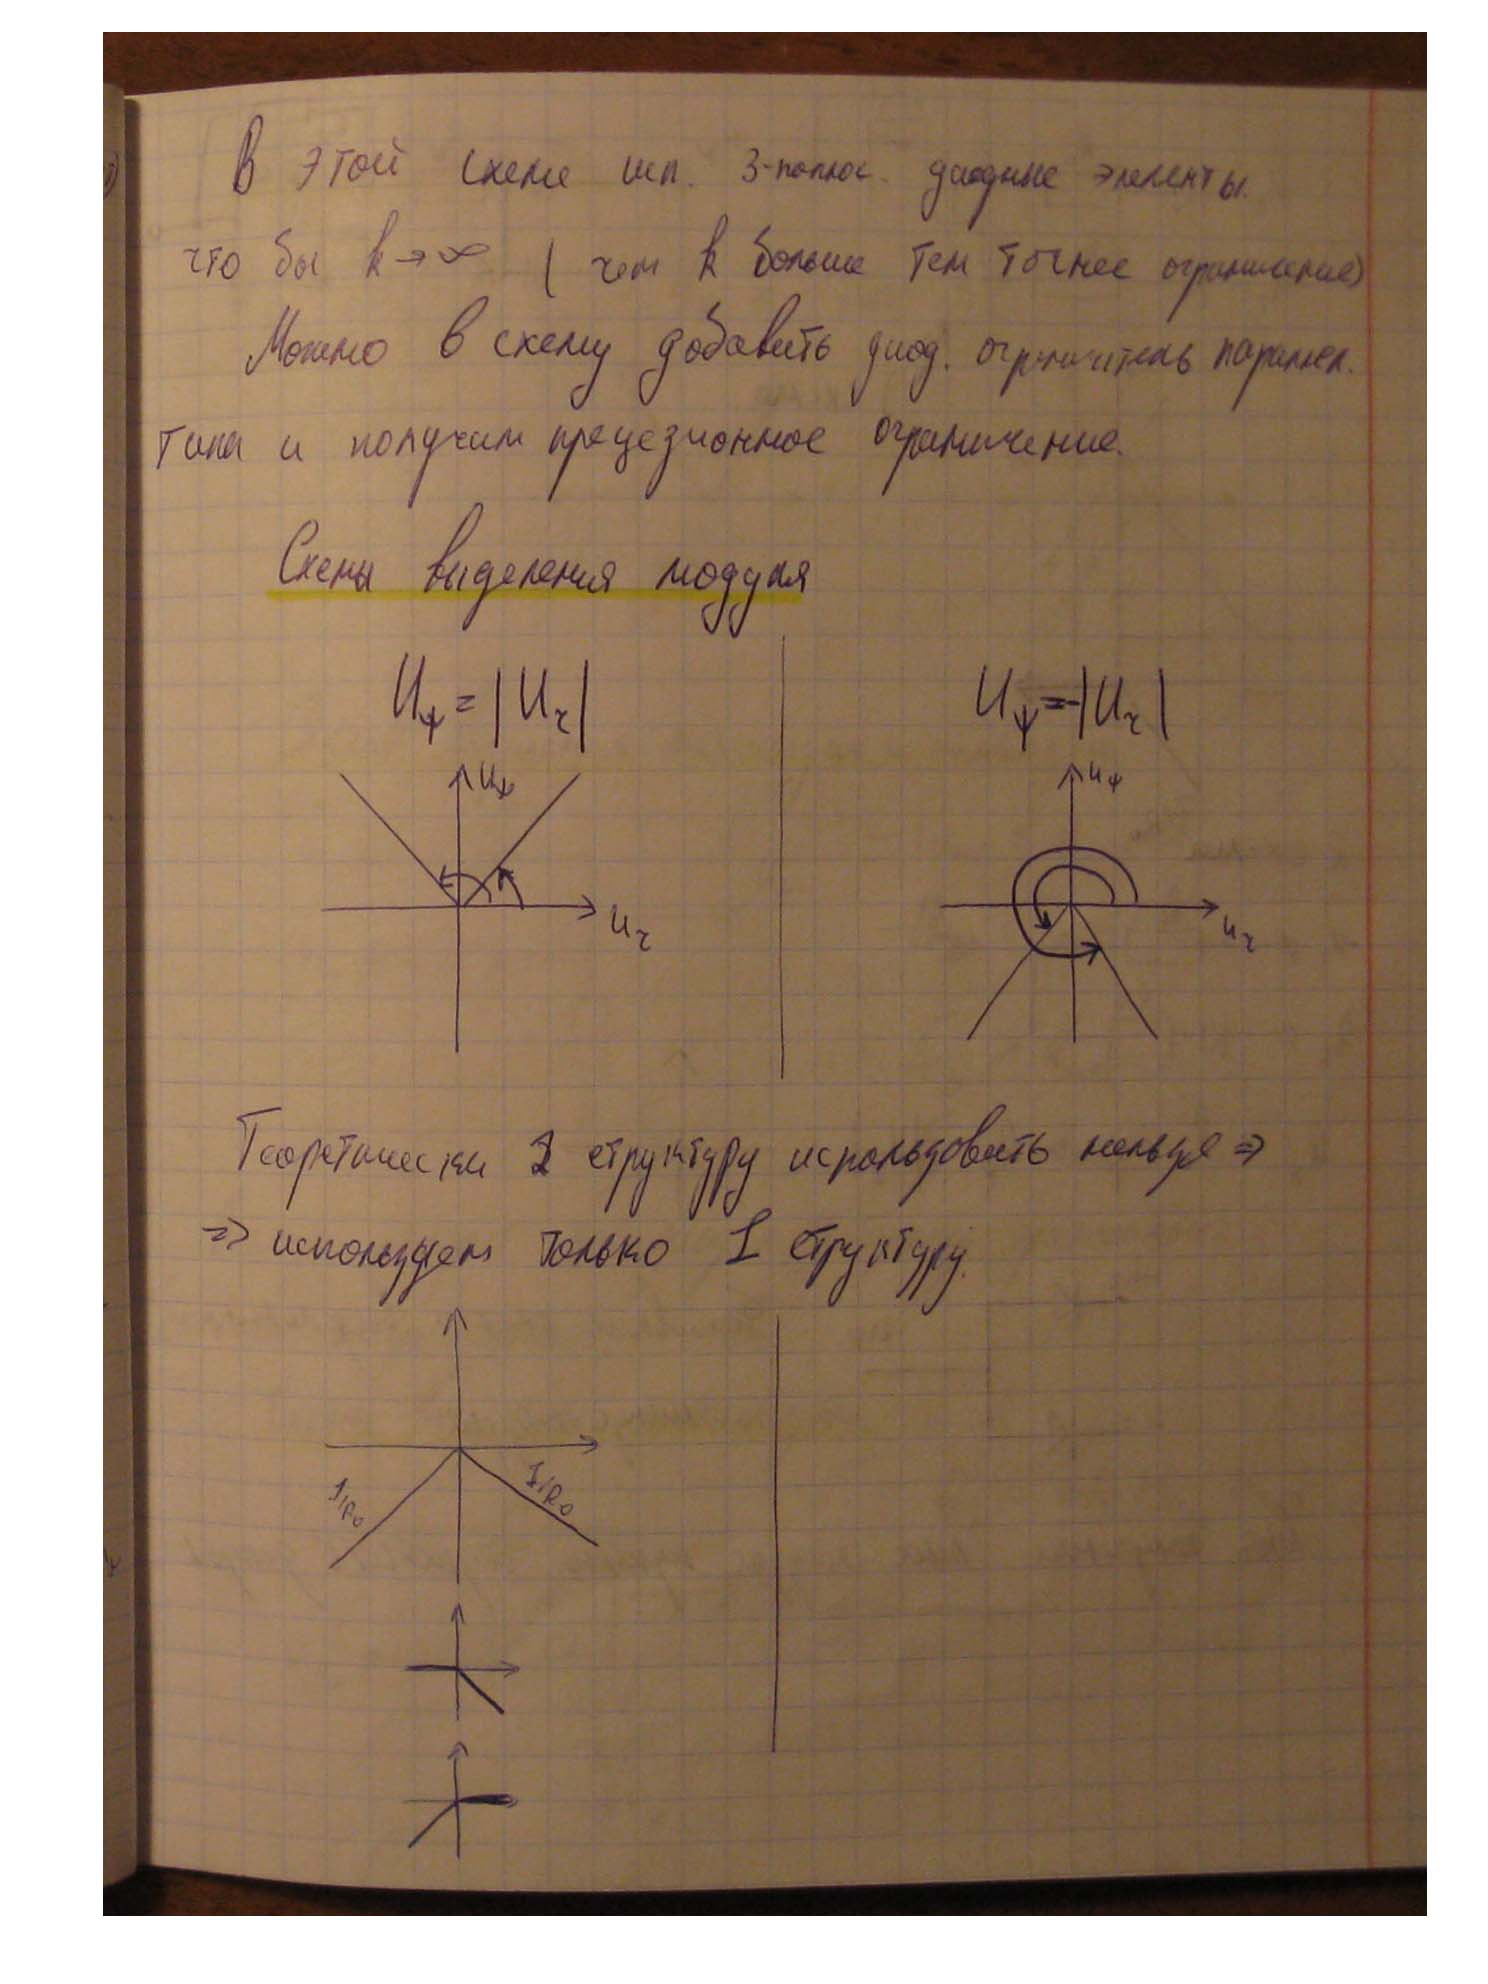 В этой схеме исп. 3-полюс. диодные элементы.
что бы k→∞ ( чем k больше тем точнее ограничение)
Можно в схему добавить диод. ограничитель параллел.
типа и получим прецезионное ограничение.
Схемы выделения модуля
Uψ = |Uτ|
Uψ = -|Uτ|
Uψ
Uψ
Uτ
Uτ
Теоретически 2 структуру использовать нельзя ⇒
⇒ используем только 1 структуру.
1/R₀
1/R₀